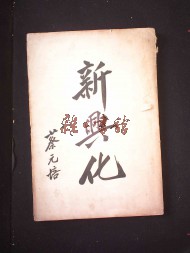 新興化
蔡元培